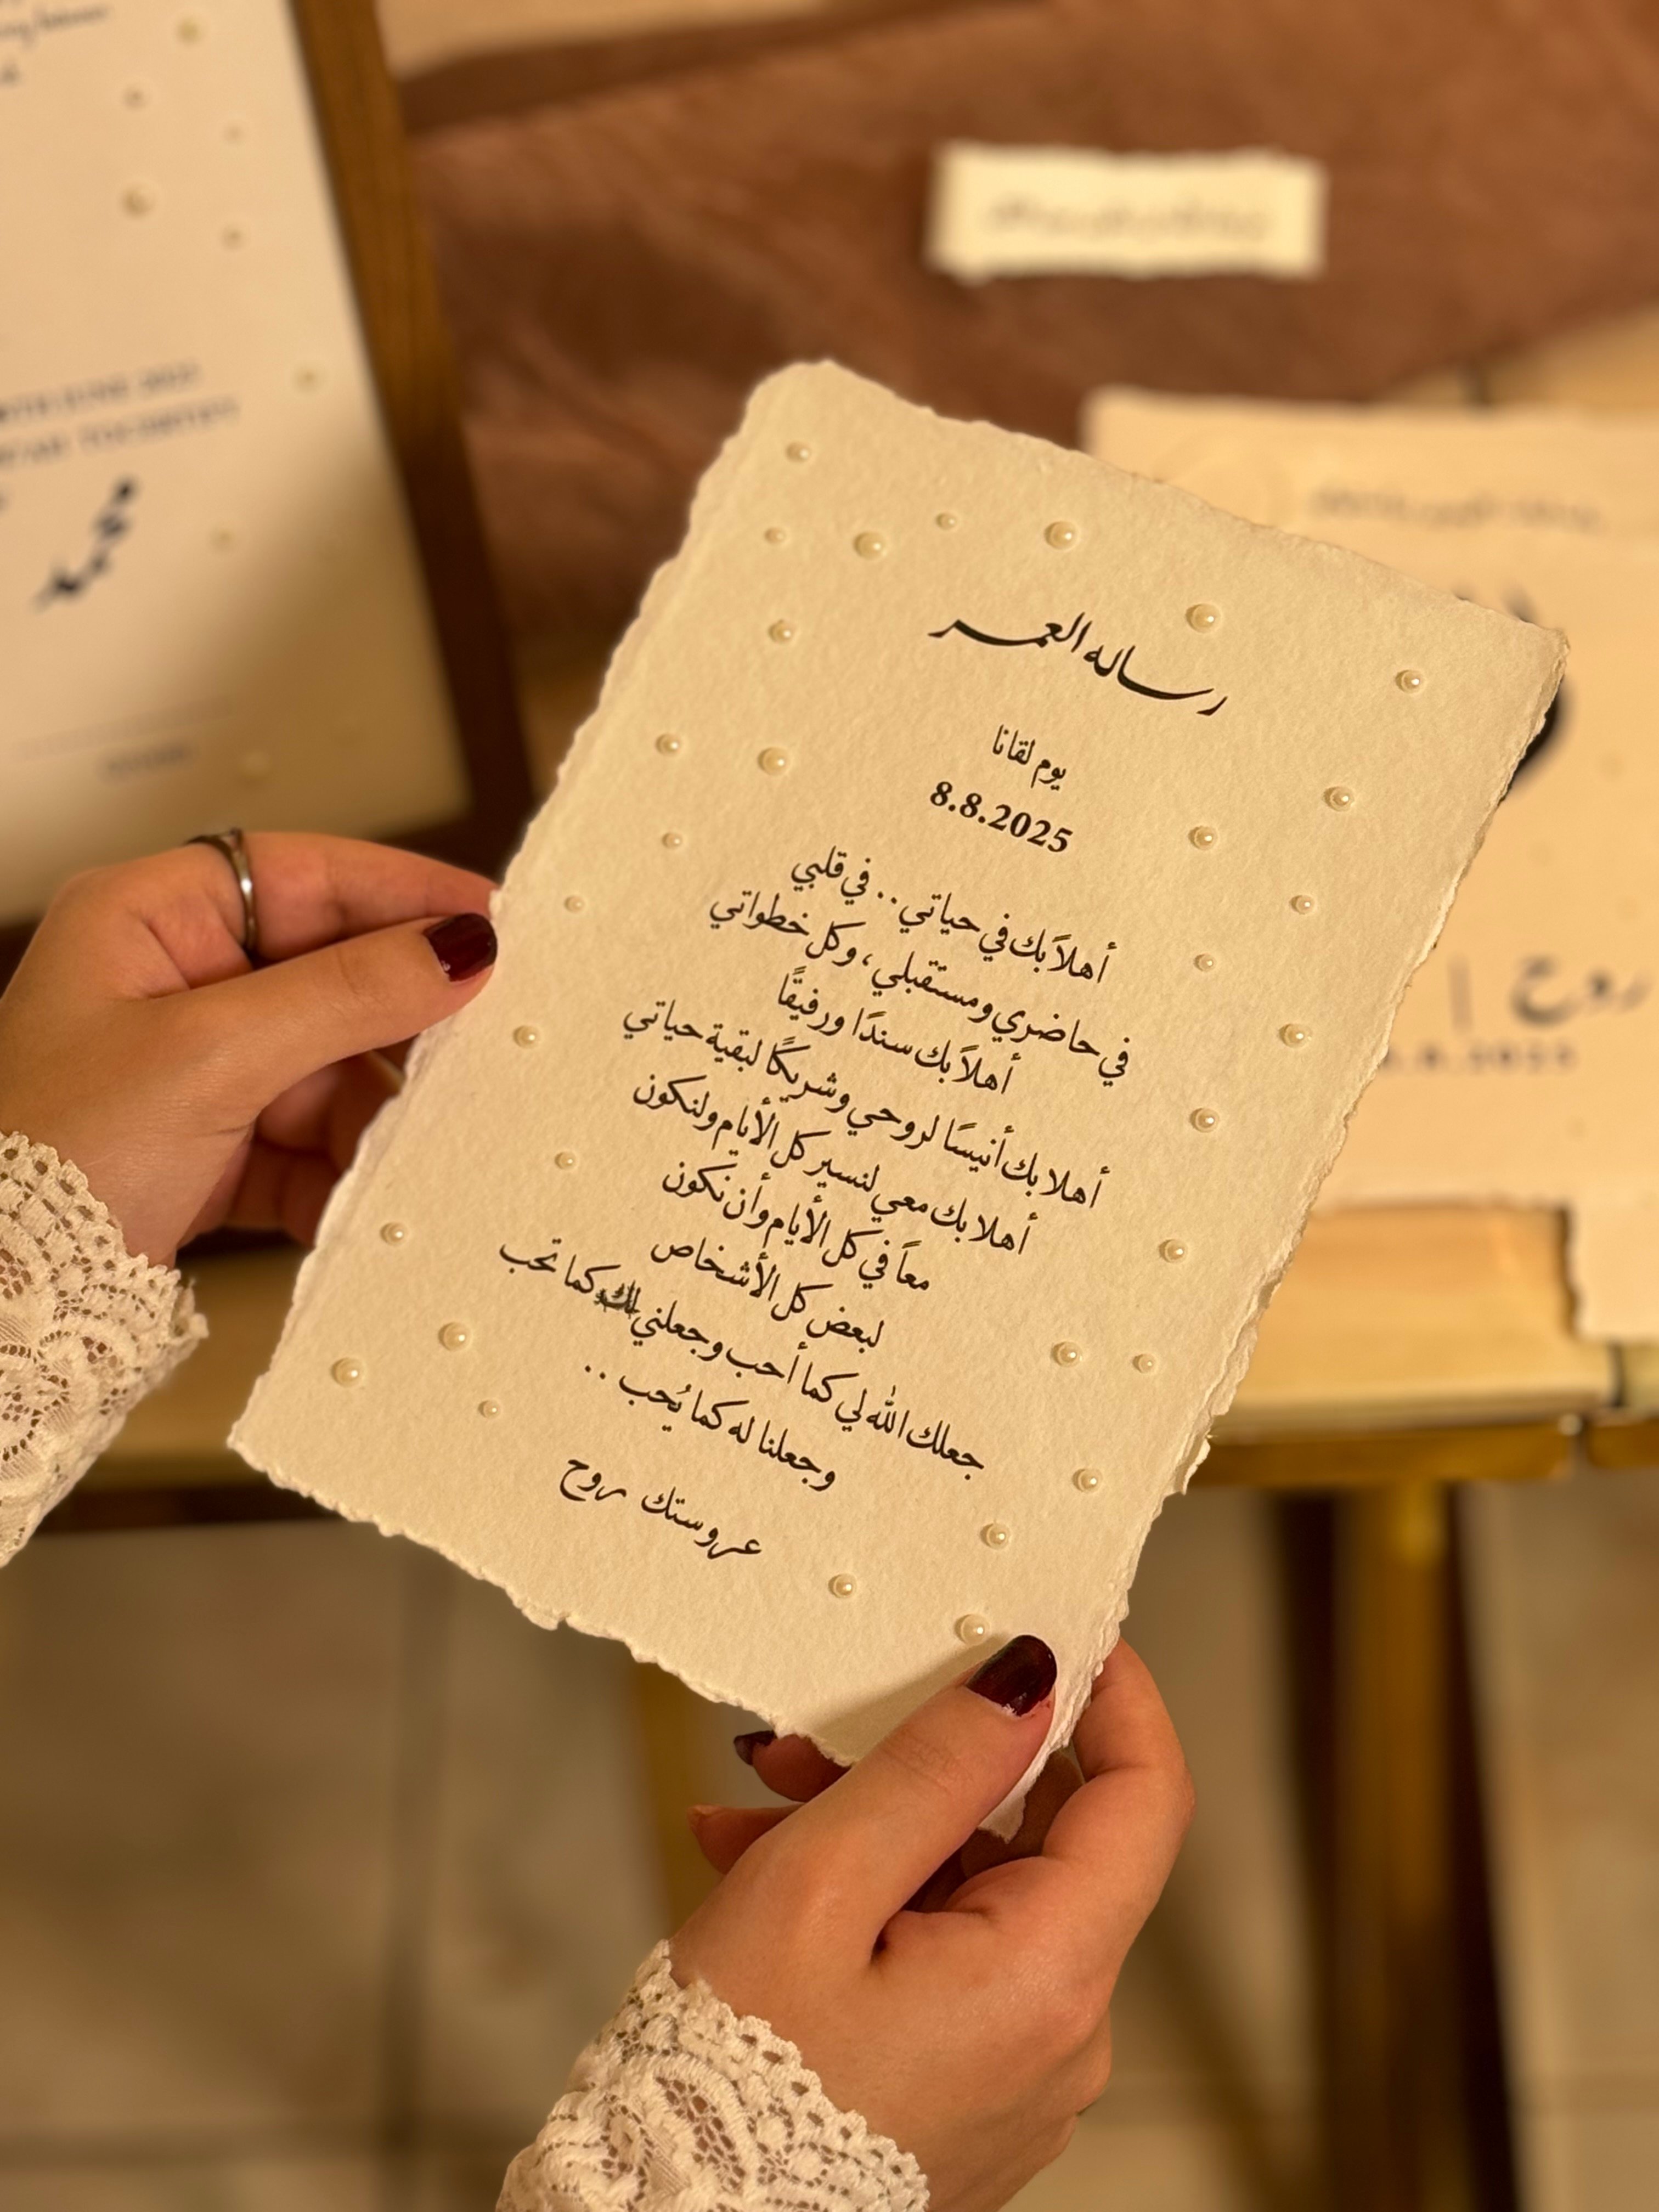 محمد
رساله العمر
يوم لقانا
8.8.2025
أهلاً بك في حياتي.. في قلبي
في حاضري ومستقبلي، وكل خطواتي
أهلاً بك سندًا ورفيقًا
أهلا بك أنيسًا لروحي وشريكًا لبقية حياتي
أهلا بك معي لنسير كل الأيام ولنكون
معاً في كل الأيام وأن نكون
لبعض كل الأشخاص
جعلك الله لي كما أحب وجعلني لك كما تحب
وجعلنا له كما يُحب ..
عروستك روح
روح |